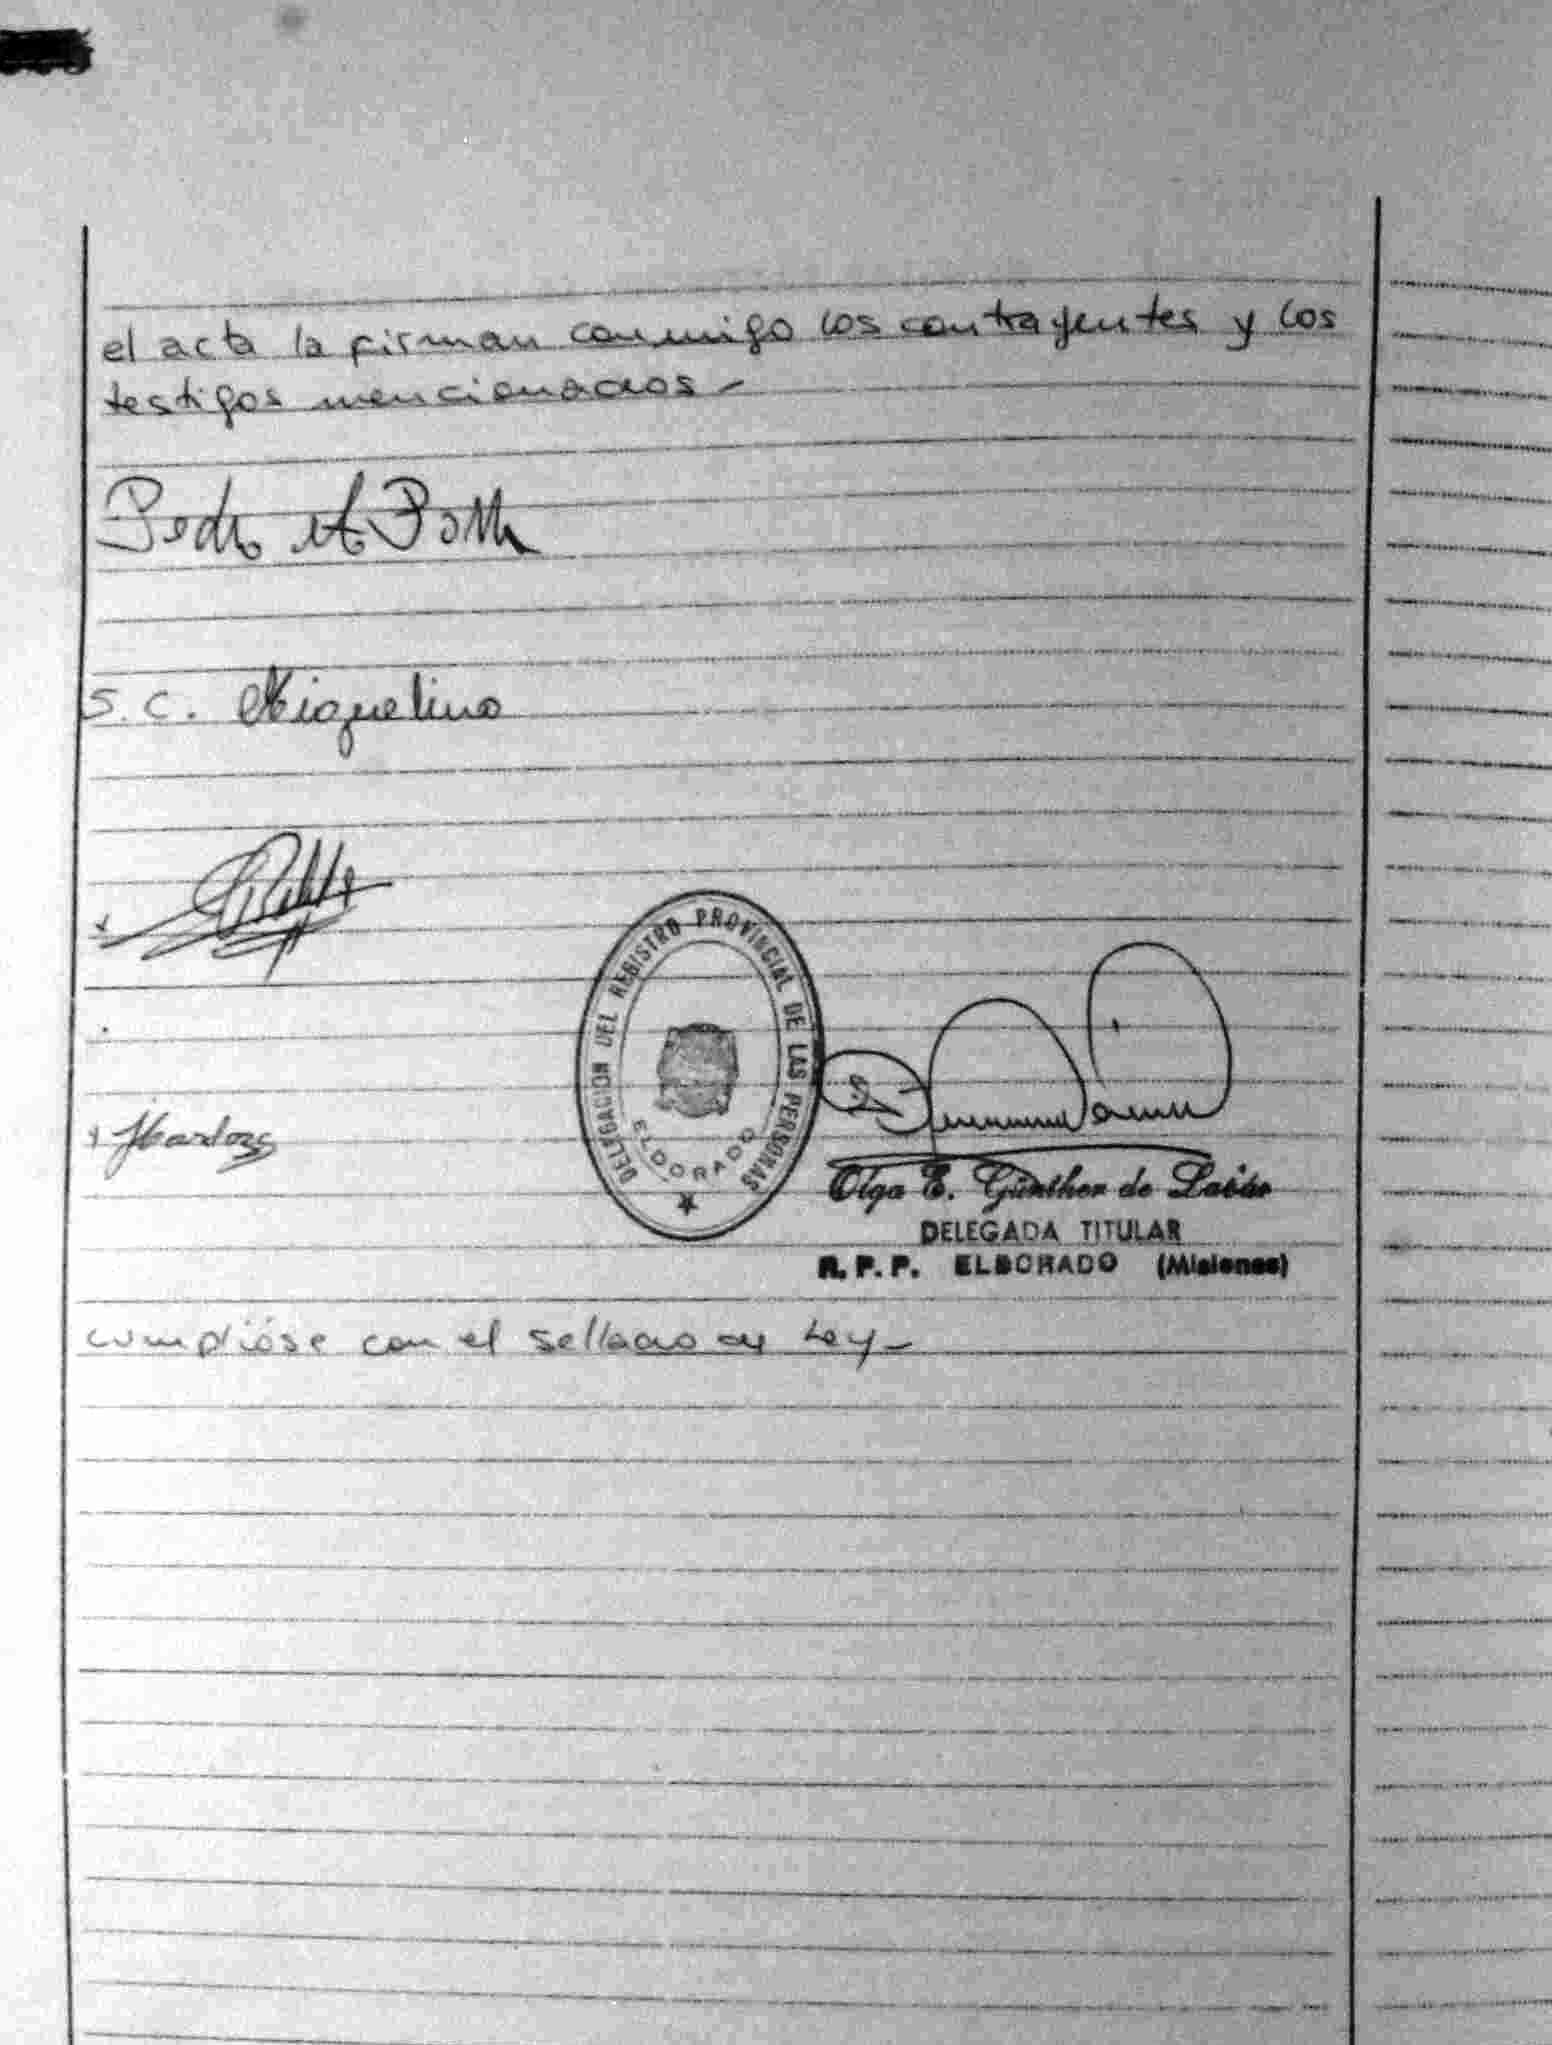 el acta la firman conmigo los contrayentes y los
testigos mencionados -
Pedro A
S. C. Miquelino
DELEGACION DEL REGISTRO PROVINCIAL DE LAS PERSONAS
ELDORADO
Olga E. Günther de
DELEGADA TITULAR
R. P. P. ELDORADO (Misiones)
cumplióse con el sellado de Ley -